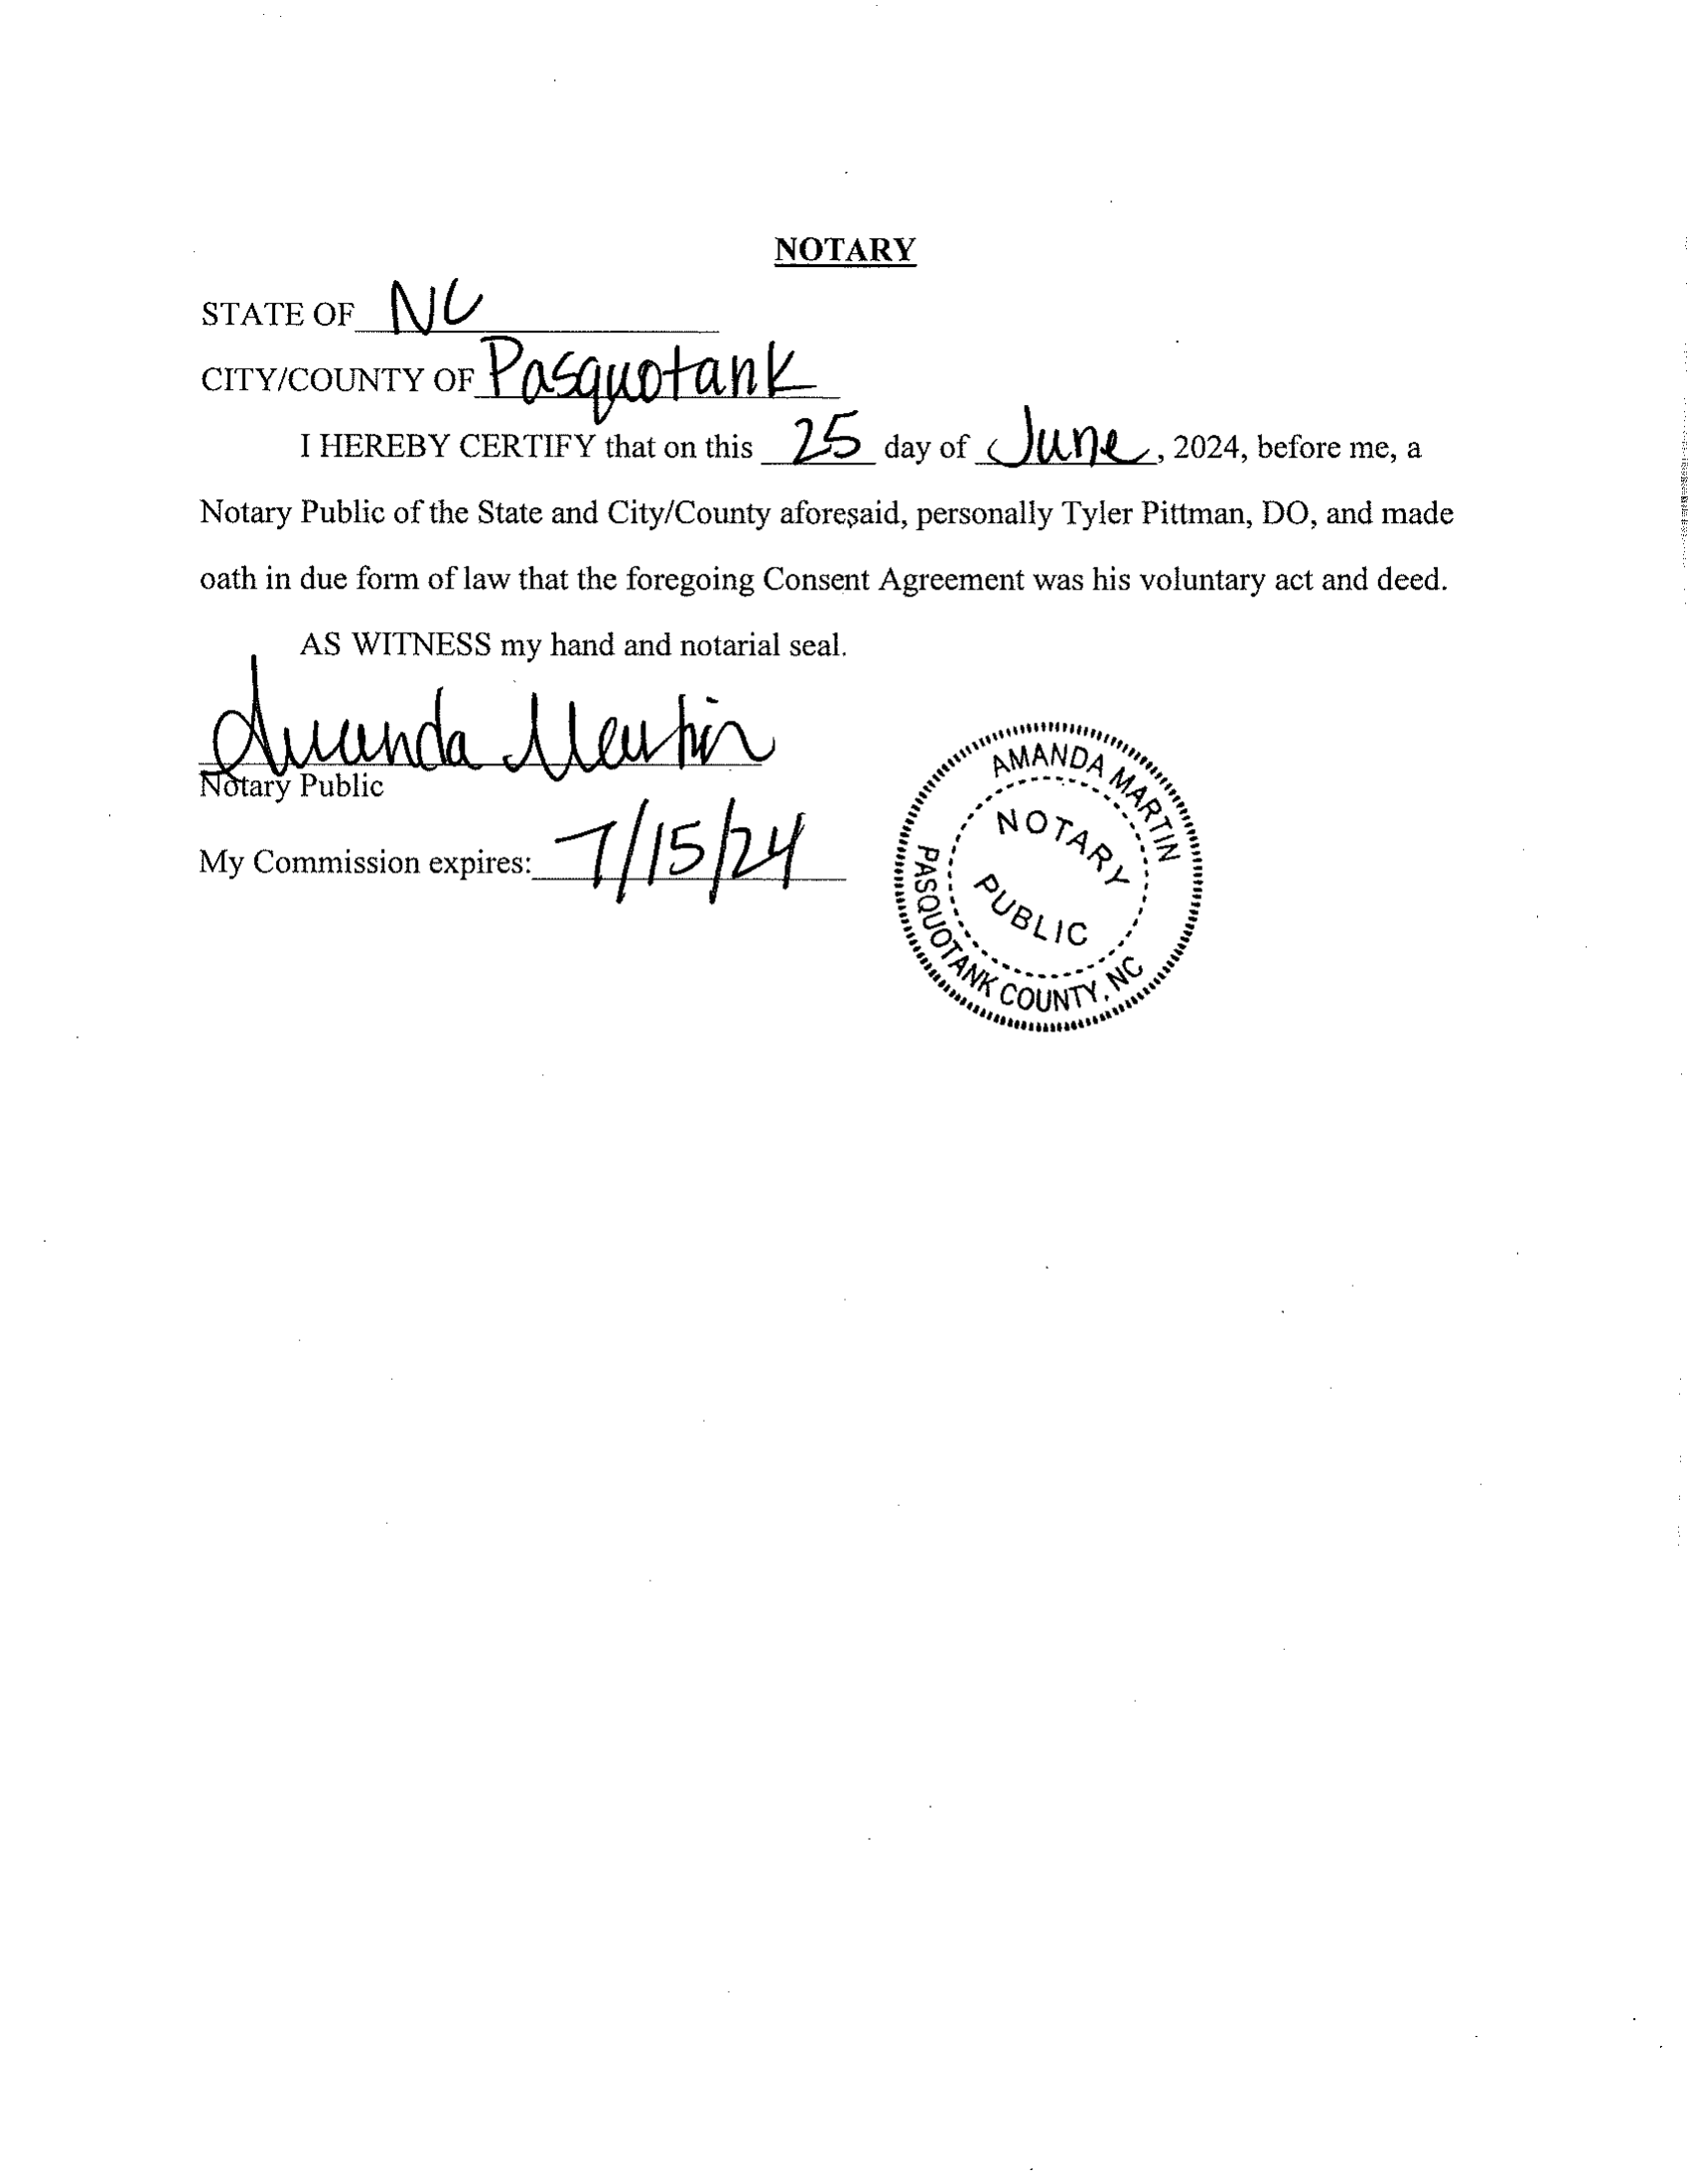 NOTARY
STATE OF NC
CITY/COUNTY OF Pasquotank
I HEREBY CERTIFY that on this 25 day of June, 2024, before me, a
Notary Public of the State and City/County aforesaid, personally Tyler Pittman, DO, and made
oath in due form of law that the foregoing Consent Agreement was his voluntary act and deed.
AS WITNESS my hand and notarial seal.
Amanda Martin
Notary Public
My Commission expires: 7/15/24
AMANDA MARTIN
NOTARY
PUBLIC
PASQUOTANK COUNTY, NC